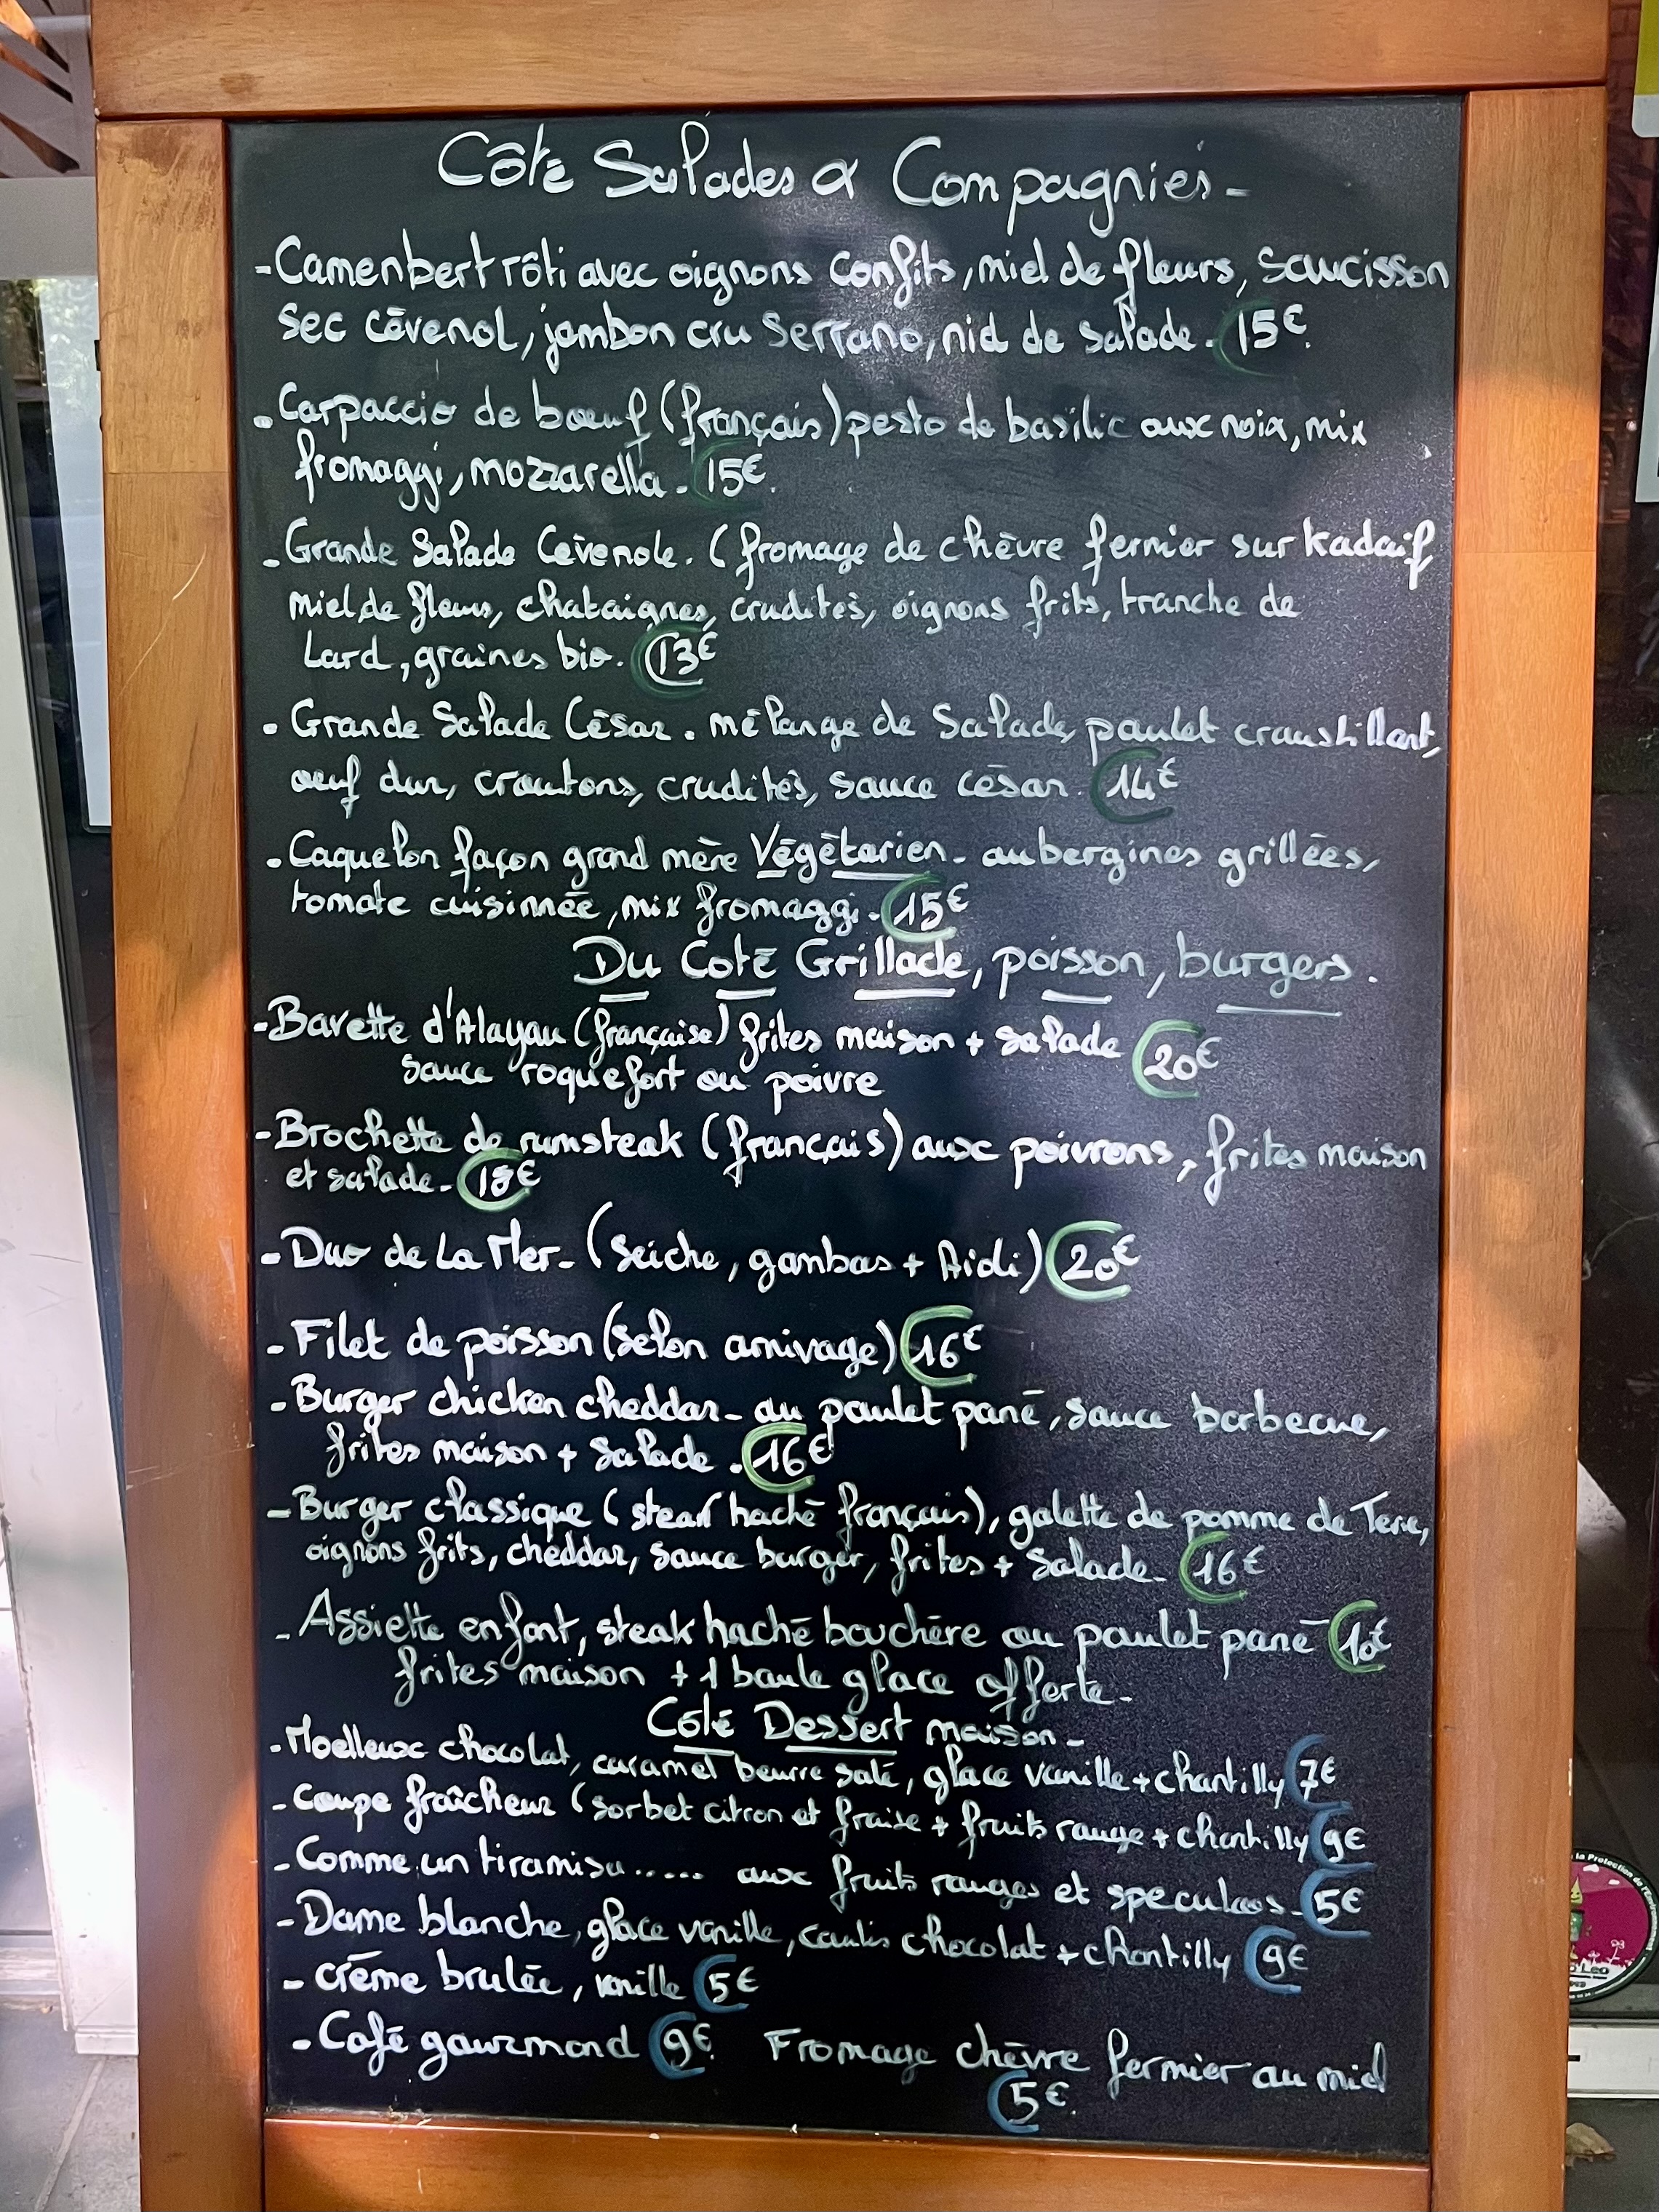 Côté Salades & Compagnies -
- Camenbert rôti avec oignons confits, miel de fleurs, saucisson
sec cévenol, jambon cru Serrano, nid de salade. 15€.
- Carpaccio de bœuf (français) pesto de basilic aux noix, mix
fromaggi, mozzarella - 15€.
- Grande Salade Cévenole. (fromage de chèvre fermier sur kadaïf
miel de fleurs, chataignes, crudités, oignons frits, tranche de
Lard, graines bio. 13€
- Grande Salade César. mélange de Salade, poulet croustillant,
œuf dur, croutons, crudités, sauce césar. 14€
- Caquelon façon grand mère Végétarien - aubergines grillées,
tomate cuisinnée, mix fromaggi - 15€
Du Coté Grillade, poisson, burgers.
- Bavette d'Alayau (française) frites maison + salade 20€
sauce roquefort ou poivre
- Brochette de rumsteak (français) aux poivrons, frites maison
et salade - 18€
- Duo de La Mer - (seiche, gambas + Aioli) 20€
- Filet de poisson (selon arrivage) 16€
- Burger chicken cheddar - au poulet pané, sauce barbecue,
frites maison + salade . 16€
- Burger classique (steak haché français), galette de pomme de Terre,
oignons frits, cheddar, sauce burger, frites + salade - 16€
- Assiette enfant, steak haché bouchère ou poulet pané - 10€
frites maison + 1 boule glace offerte -
Côté Dessert maison -
- Moelleux chocolat, caramel beurre salé, glace vanille + chantilly 7€
- Coupe fraîcheur (sorbet citron et fraise + fruits rouge + chantilly 9€
- Comme un tiramisu ..... aux fruits rouges et speculoos - 5€
- Dame blanche, glace vanille, coulis chocolat + chantilly 9€
- crème brulée, vanille 5€
- Café gourmond 9€. Fromage chèvre fermier au miel
5€.